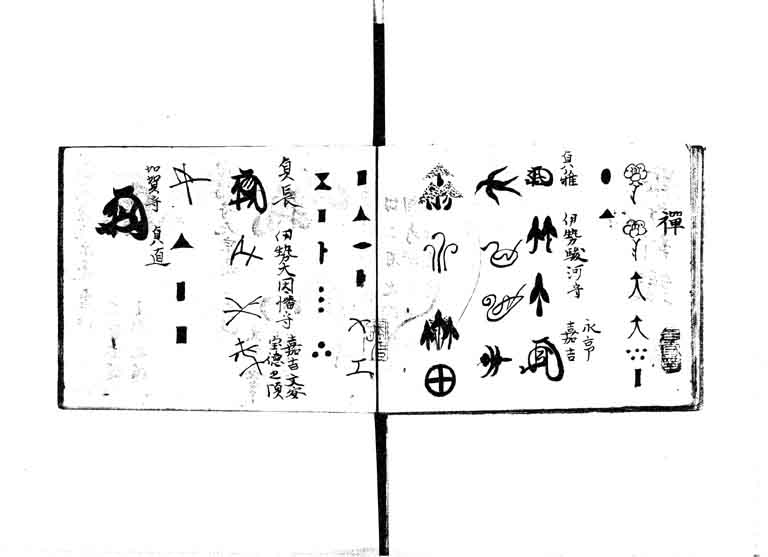 禪
貞雅 伊勢駿河守 永享
嘉吉
貞長 伊勢大因幡守 嘉吉文安
宝徳之頃
加賀守 貞直